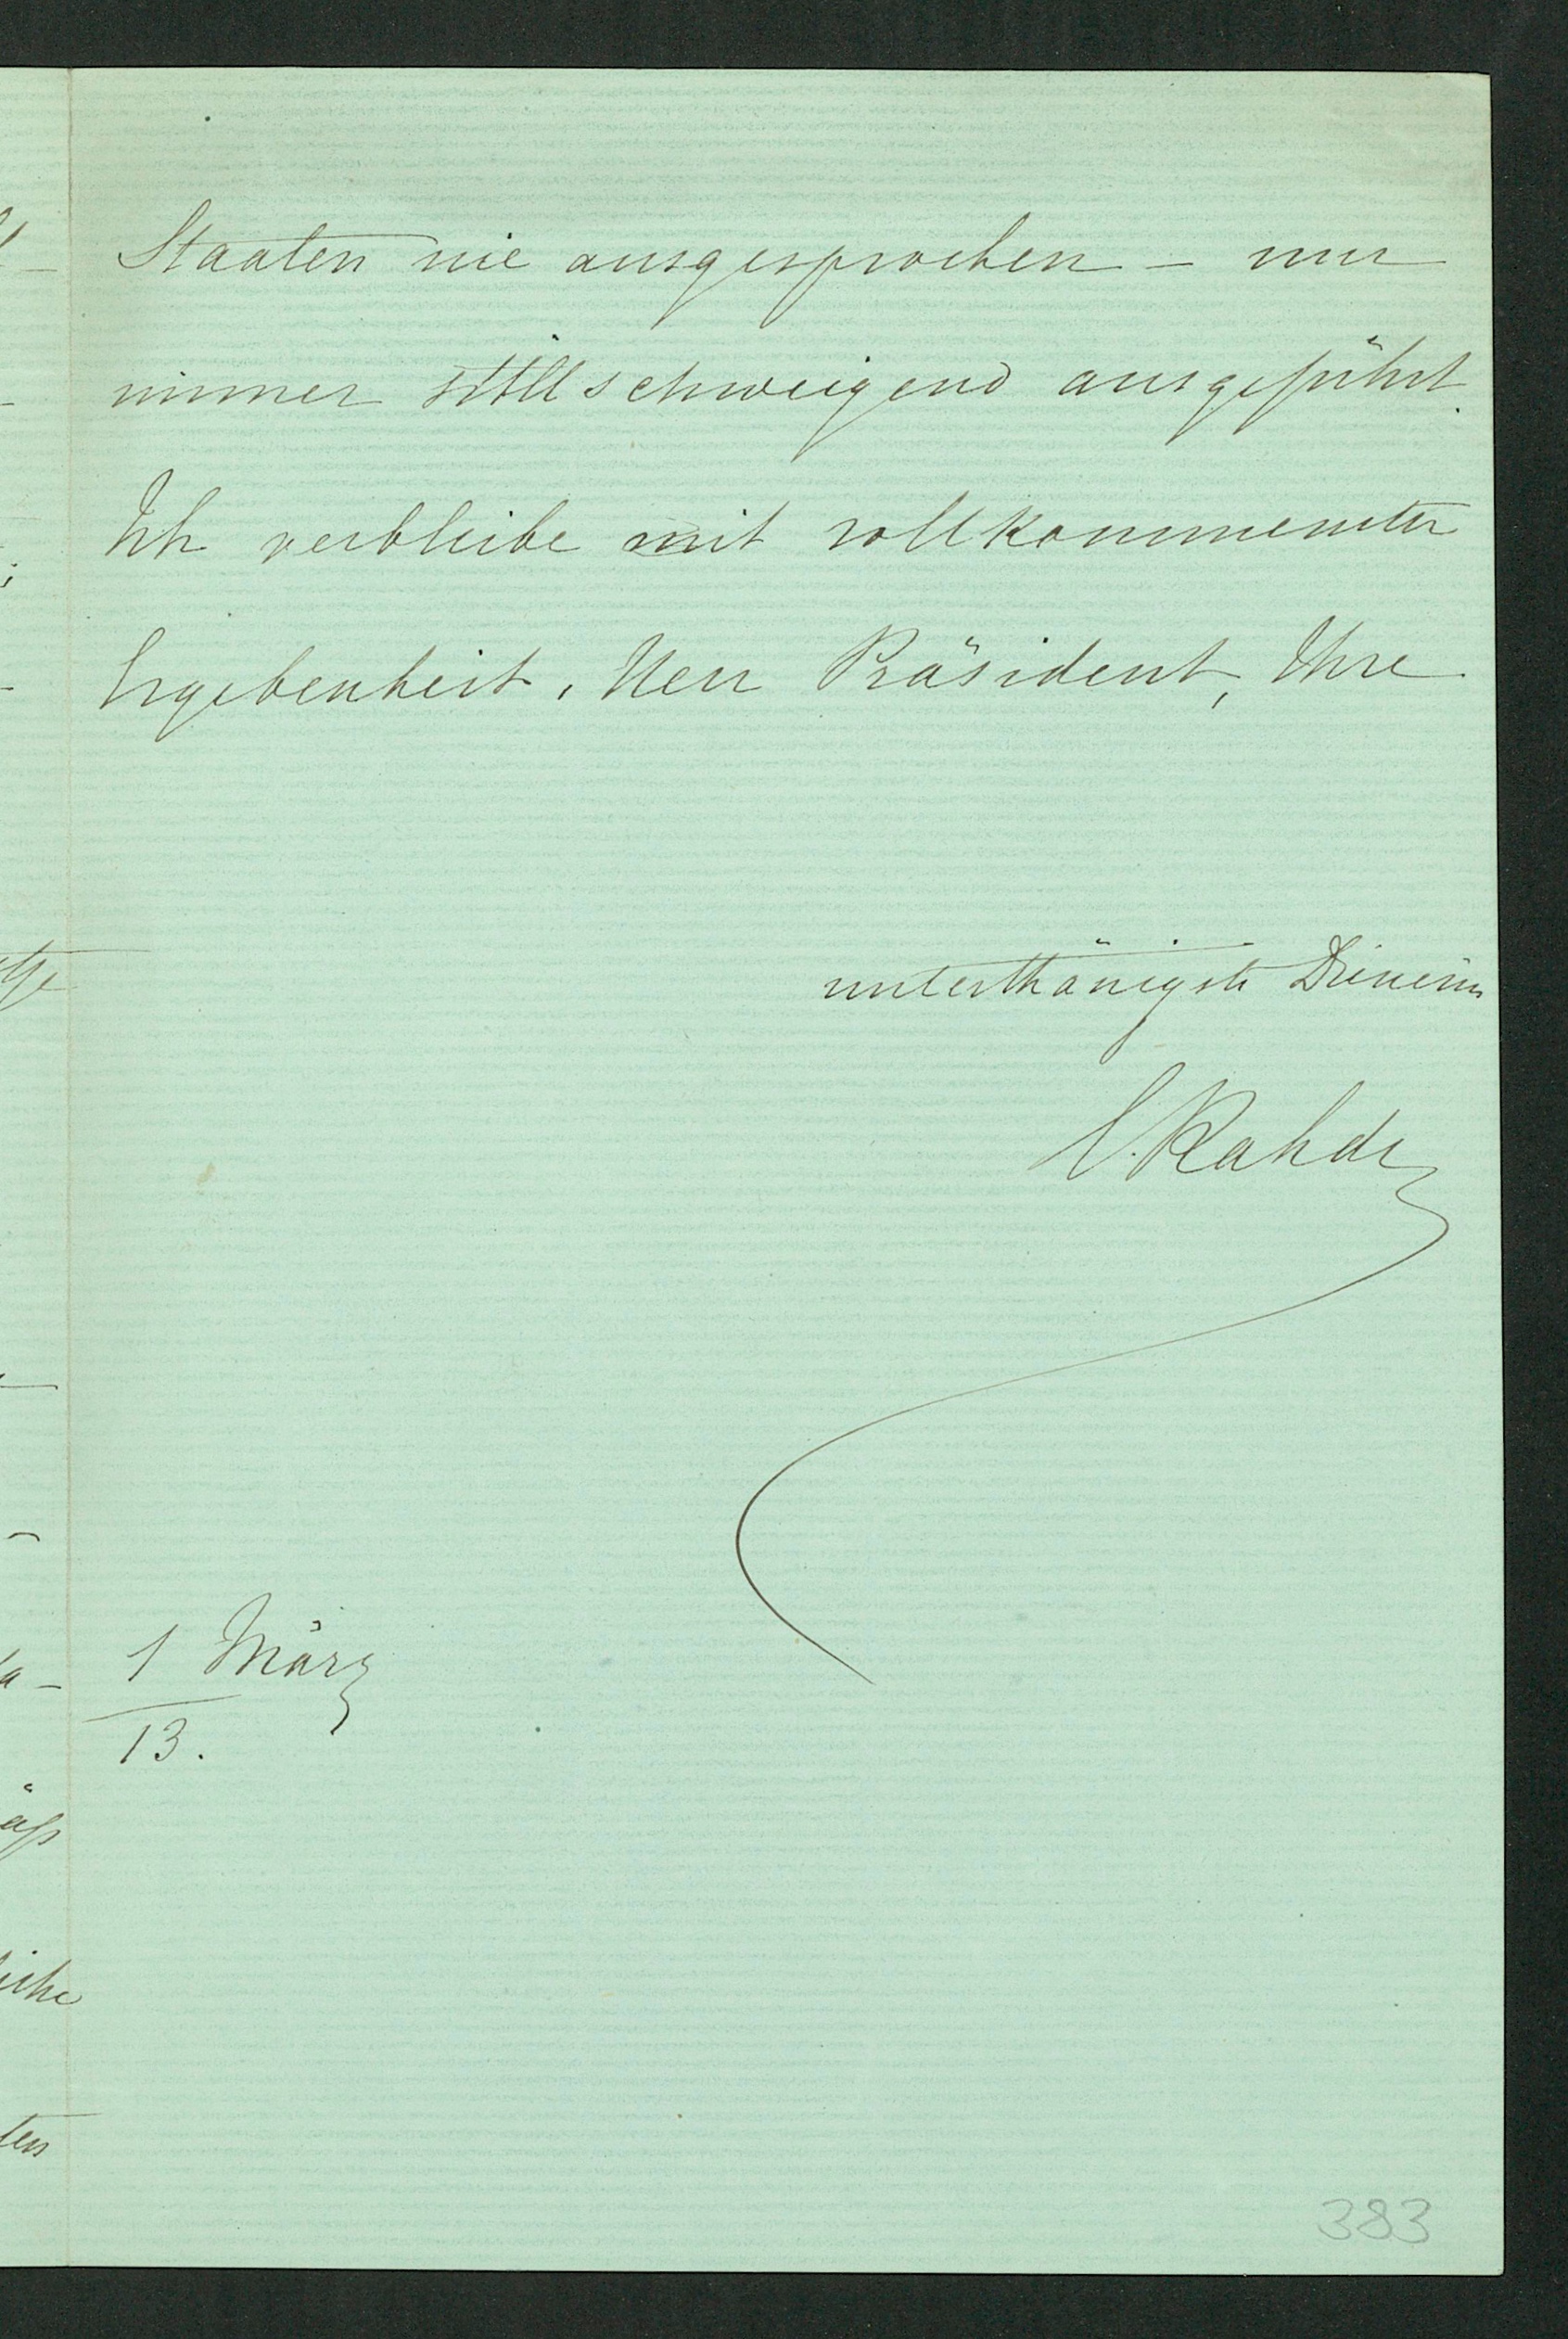 Staaten nie ausgesprochen – nur
immer stillschweigend ausgeführt.
Ich verbleibe mit vollkommenster
Ergebenheit, Herr Präsident, Ihre
unterthänigste Dienerin
E. Rahden
1 März
13.
383